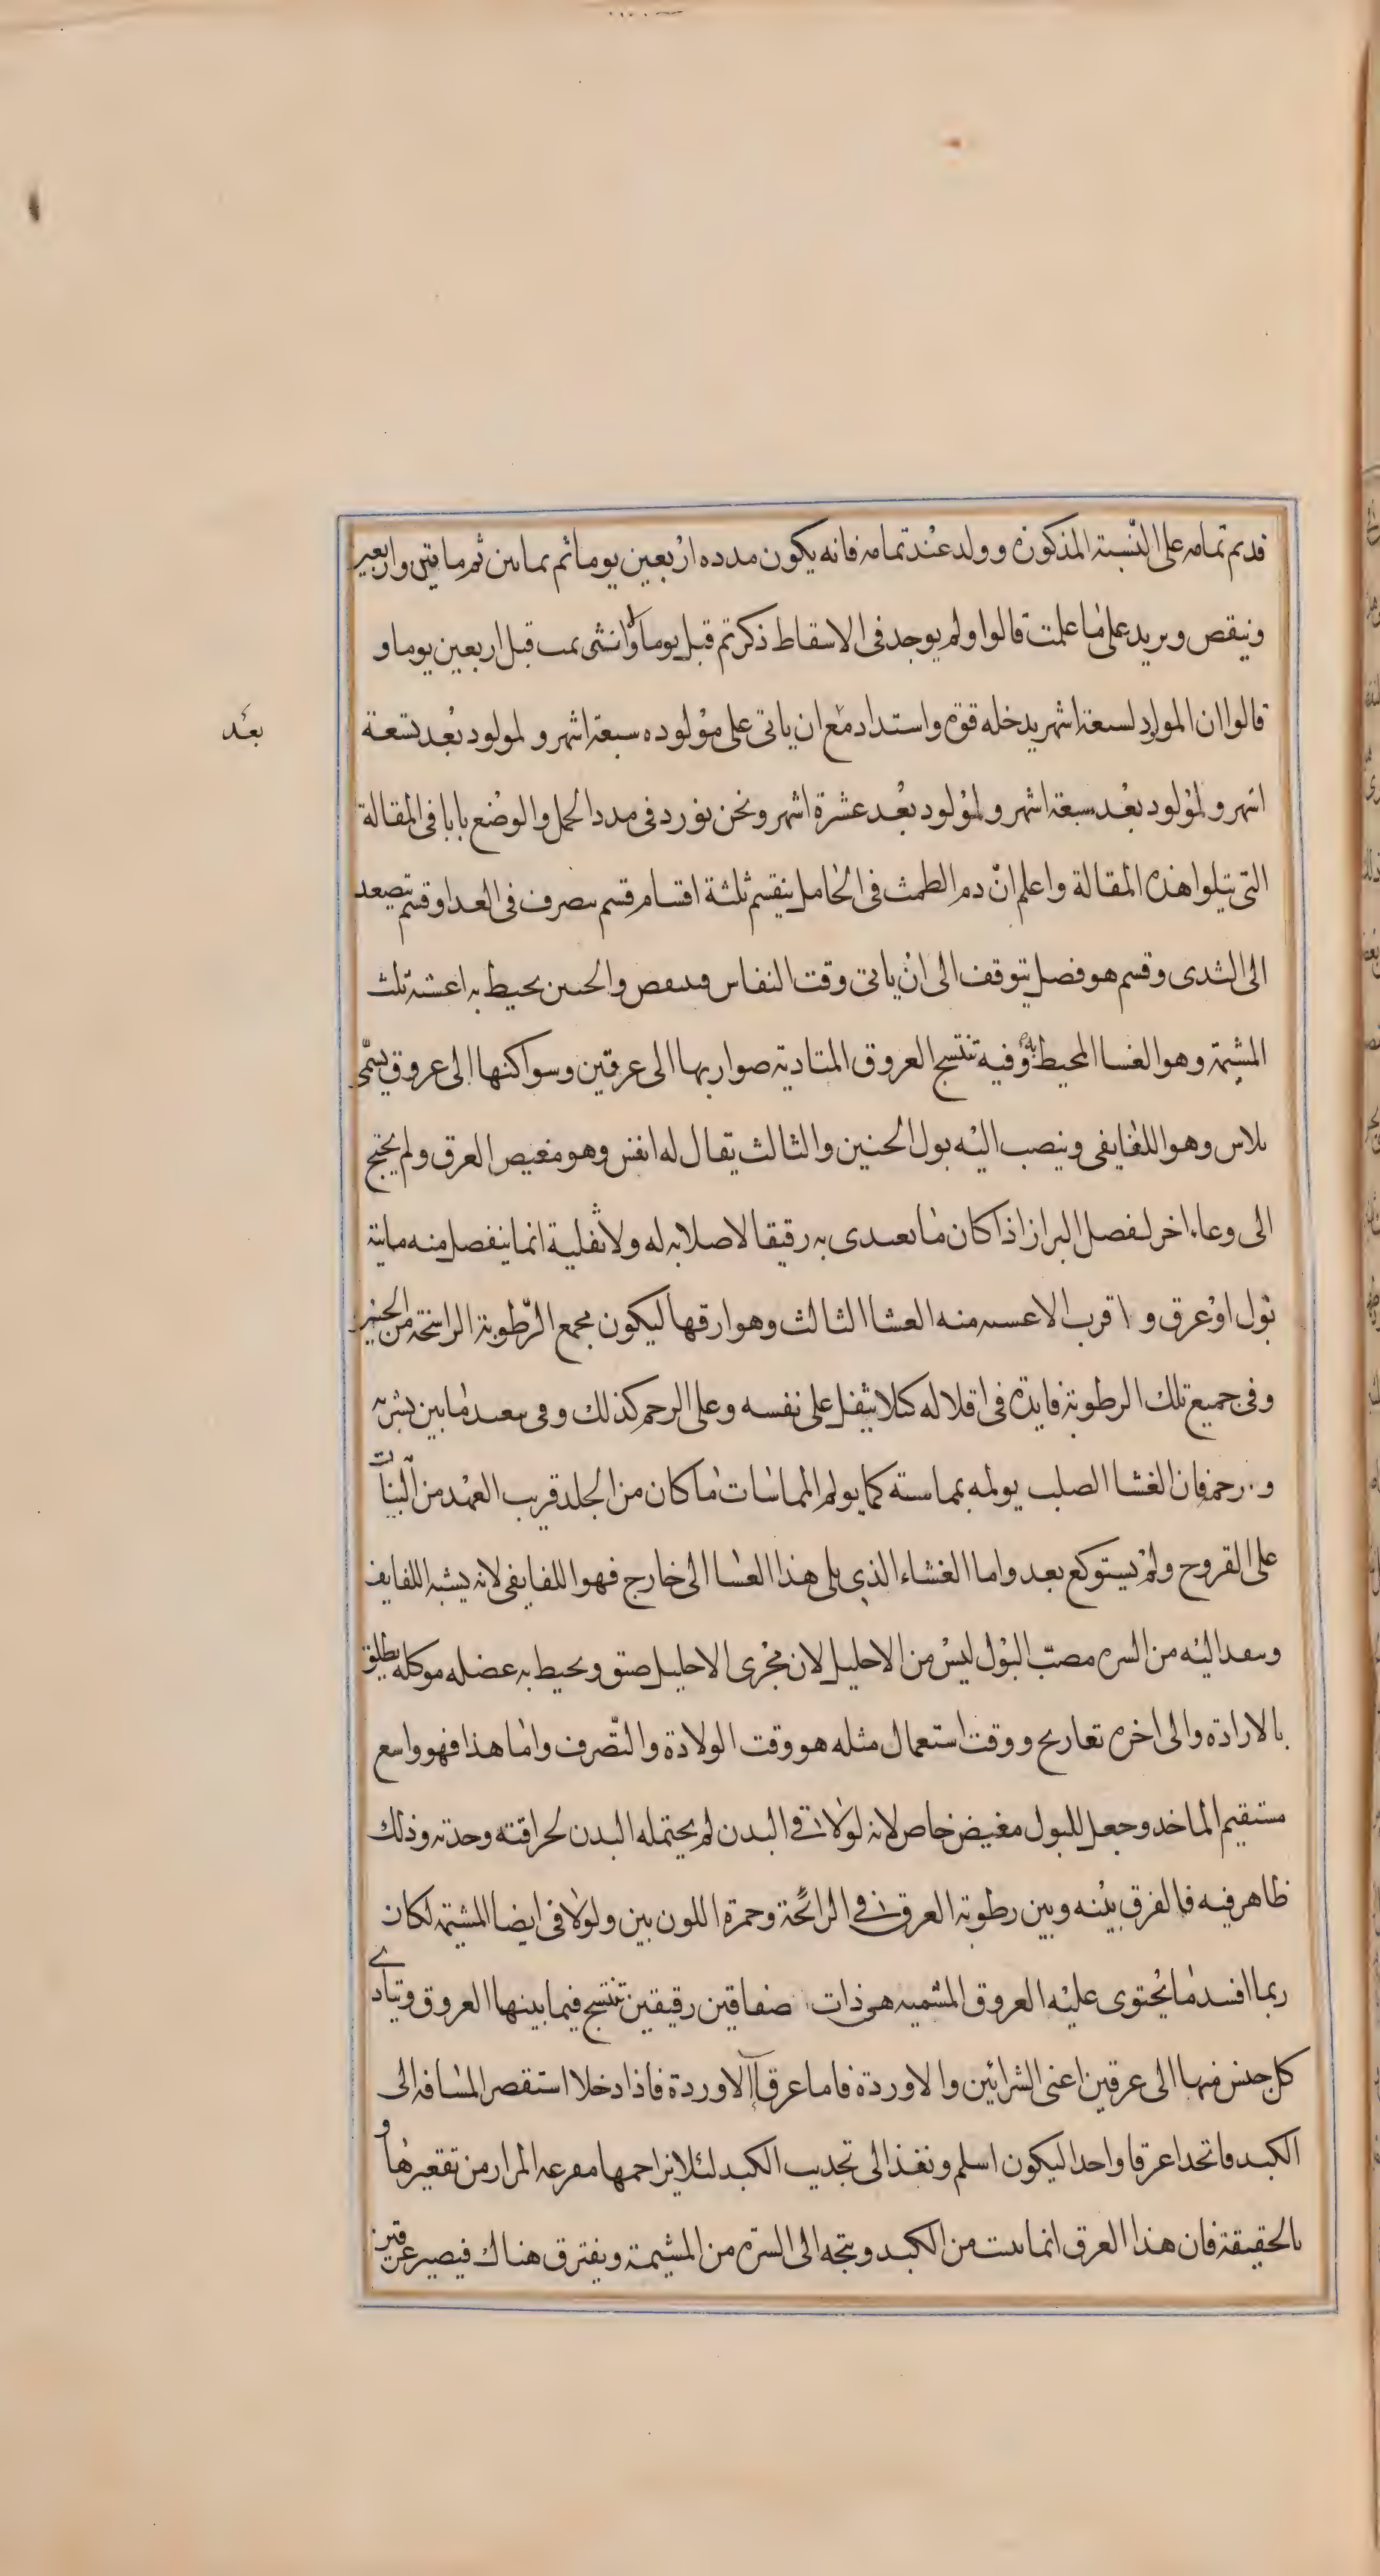 قدتم تمامه على النسبة المذكورة وولد عند تمامه فانه يكون مدده اربعين يوما ثم ثمانين ثم مايتين واربعين
وينقص ويزيد على ما علمت قالوا ولم يوجد فى الاسقاط ذكر تم قبل يوما ولا انثى تمت قبل اربعين يوما و
قالوا ان المولود لسبعة اشهر يدخله قوة واستداد مع ان ياتى على مولوده سبعة اشهر و لمولود بعد تسعة
بعد
اشهر و لمولود بعد سبعة اشهر و لمولود بعد عشرة اشهر ونحن نورد فى مدد الحمل والوضع بابا فى المقالة
التى يتلوا هذه المقالة واعلم ان دم الطمث فى الحامل ينقسم ثلثة اقسام قسم ينصرف فى الغدا وقسم يتصعد
الى الثدى وقسم هو فصل يتوقف الى ان ياتى وقت النفاس فينقص والجنين يحيط به اغشية ثلث
المشيمة وهو الغشا المحيط به وفيه تنتسج العروق المتادية صواربها الى عرقين وسواكنها الى عروق يسمى
بلاس وهو اللفايفى وينصب اليه بول الجنين والثالث يقال له انفس وهو مغيص العرق ولم يحتج
الى وعاء اخر لفصل البراز اذا كان ما يغتدى به رقيقا لا صلابة له ولا ثفلية انما ينفصل منه ماية
بول او عرق و اقرب الاغشيه منه الغشا الثالث وهو ارقها ليكون مجمع الرطوبة الراشحة من الجنين
وفى جميع تلك الرطوبة فايدة فى اقلاله كيلا يثقل على نفسه وعلى الرحم كذلك وفى تبعيد ما بين بشرته
و رحم فان الغشا الصلب يولمه بمماسته كما يولم المماسات ما كان من الجلد قريب العهد من النبات
على القروح ولم يستوكع بعد واما الغشاء الذى يلى هذا الغشا الى خارج فهو اللفايفى لانه يشبه اللفايف
وينفد اليه من السره مصب البول ليس من الاحليل لان مجرى الاحليل ضيق ويحيط به عضله موكله يطلق
بالارادة والى اخره تعاريج ووقت استعمال مثله هو وقت الولادة والتصرف واما هذا فهو واسع
مستقيم الماخد وجعل للبول مغيض خاص لانه لو لاقى البدن لم يحتمله البدن لحرافته وحدته وذلك
ظاهر فيه فالفرق بينه وبين رطوبة العرق فى الرائحة وحمرة اللون بين ولو لاقى ايضا المشيمه لكان
ربما افسد ما يحتوى عليه العروق المشيميه هى ذات صفاقين رقيقين تنتسج فيما بينها العروق ويتادى
كل جنس منها الى عرقين اعنى الشرائين والاوردة فاما عرقا الاوردة فاذا دخلا استقصر المسافه الى
الكبد فاتحدا عرقا واحدا ليكون اسلم ونفذ الى تحديب الكبد لئلا يزاحمها مفرغه المرار من تقعيرها و
بالحقيقة فان هذا العرق انما ينبت من الكبد ويتجه الى السرة من المشيمة ويفترق هناك فيصير عرقين